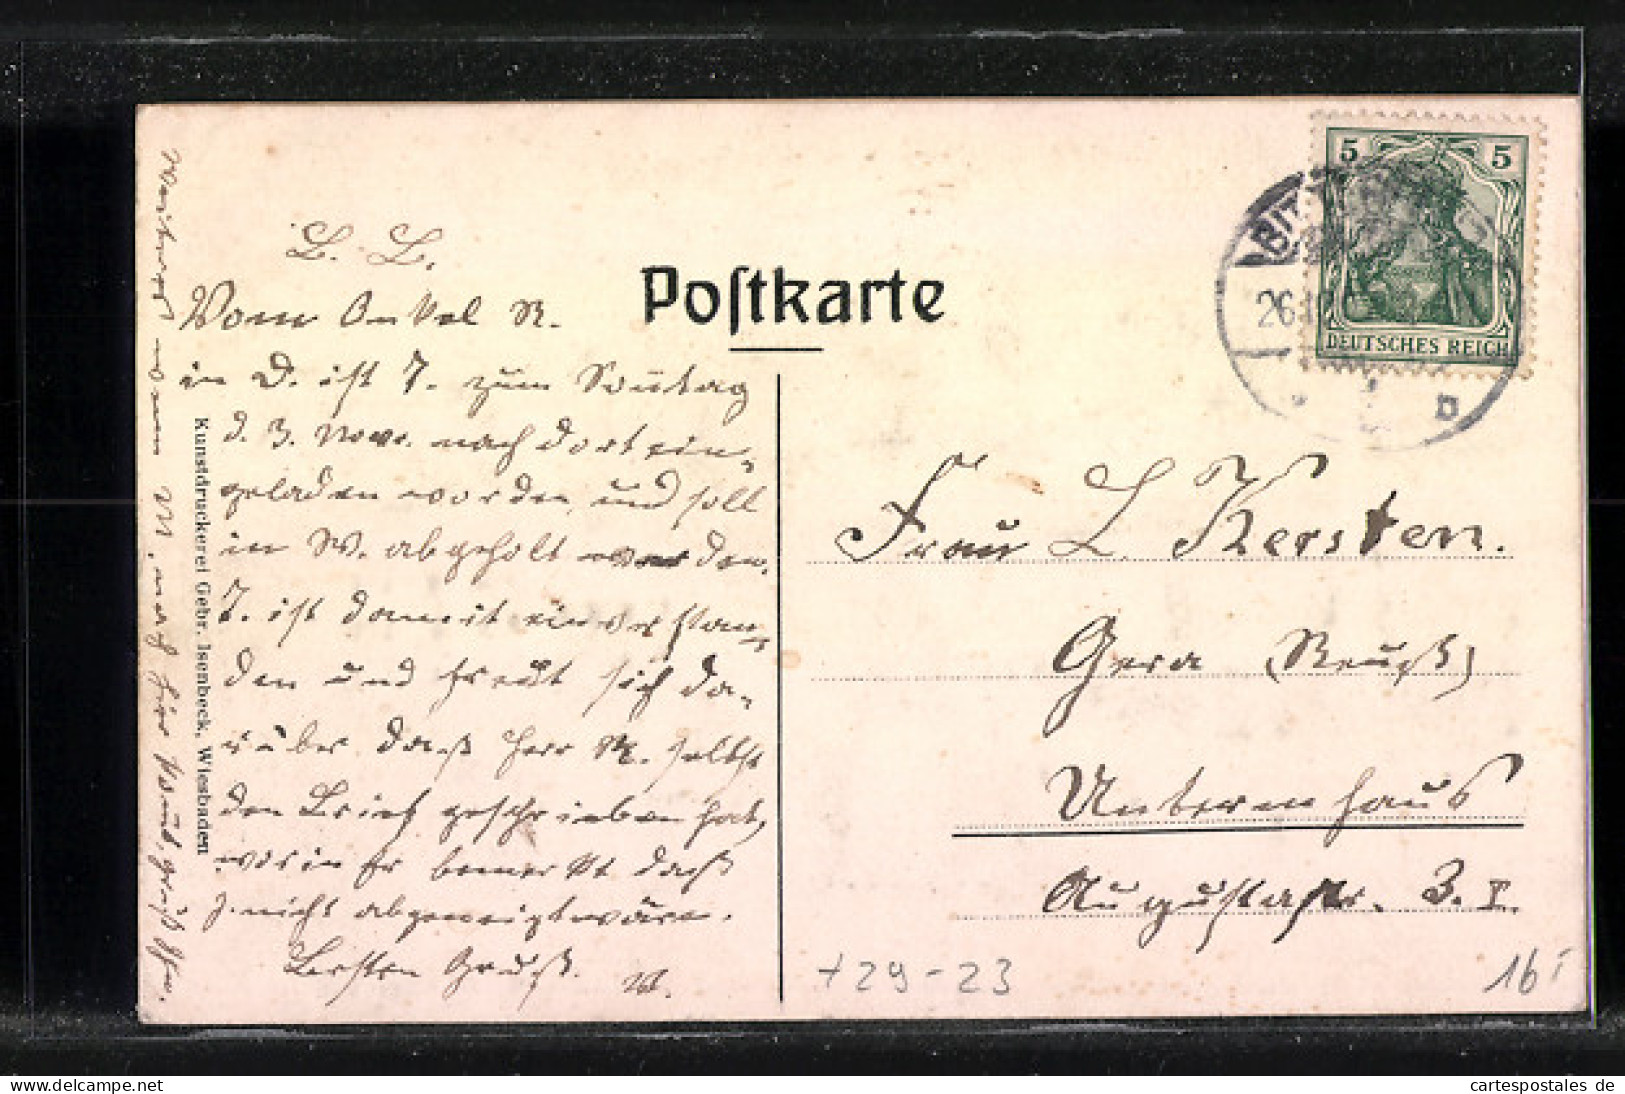 Postkarte
5 5
DEUTSCHES REICH
BIT
26
b
L. L.
Vom Onkel R.
in D. ist J. zum Sonntag
d. 3. Nov. nach dort ein-
geladen worden und soll
in W. abgeholt werden.
J. ist damit einverstan-
den und freut sich da-
rüber daß Herr R. selbst
den Brief geschrieben hat,
worin Er bemerkt daß
J. nicht abgeneigt wäre.
Besten Gruß. M.
Kunstdruckerei Gebr. Isenbeck, Wiesbaden
Frau L. Kersten.
Gera (Reuß)
Untermhaus
Augustastr. 3. I.
+29-23
16
delcampe.net
cartespostales_de